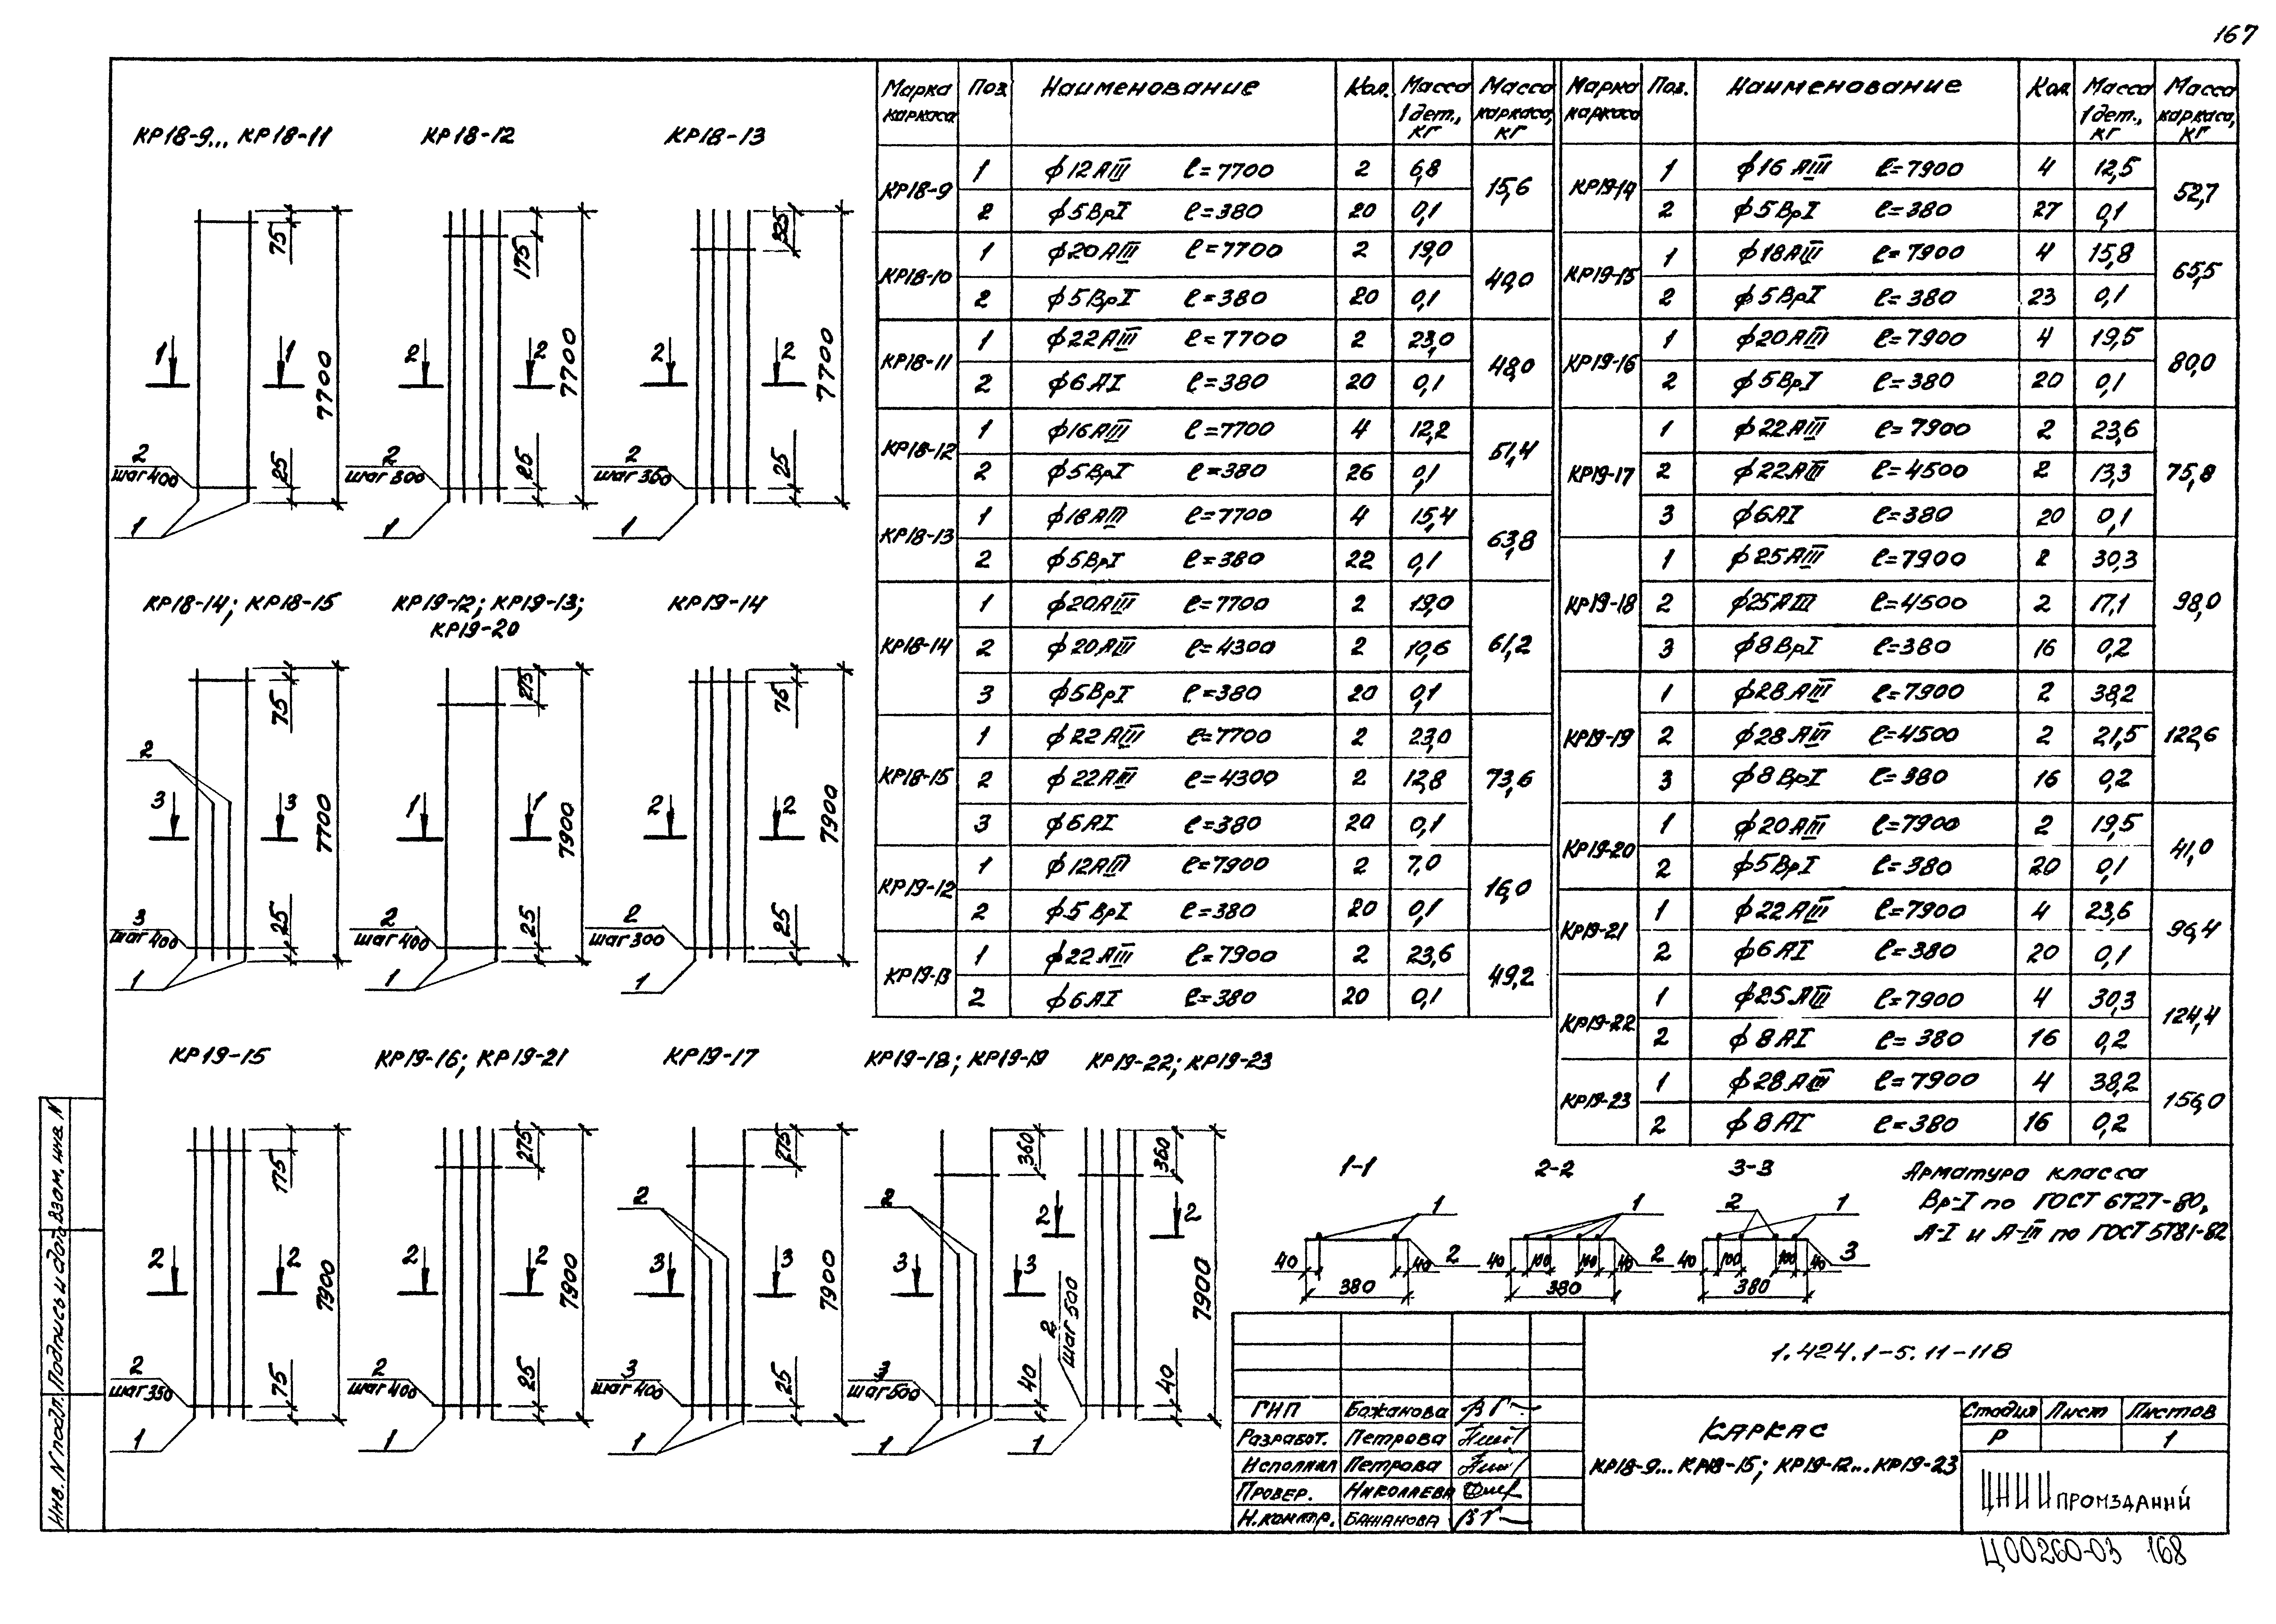 167
КР18-9... КР18-11
КР18-12
КР18-13
75
7700
1 1
2
шаг 400
25
1
175
7700
2 2
2
шаг 300
25
1
325
7700
2 2
2
шаг 350
25
1
КР18-14; КР18-15
КР19-12; КР19-13;
КР19-20
КР19-14
75
2
3 3
7700
3
шаг 400
25
1
275
1 1
7900
2
шаг 400
25
1
75
2 2
7900
2
шаг 300
25
1
КР19-15
КР19-16; КР19-21
КР19-17
КР19-18; КР19-19
КР19-22; КР19-23
175
2 2
7900
2
шаг 350
75
1
275
2 2
7900
2
шаг 400
25
1
275
2
3 3
7900
3
шаг 400
25
1
360
2
3 3
3
шаг 500
40
1
360
2 2
7900
2
шаг 500
40
1
Марка каркаса Поз Наименование Кол. Масса 1 дет., кг Масса каркаса, кг
КР18-9 1 ϕ12АIII ℓ=7700 2 6,8 15,6
2 ϕ5ВрI ℓ=380 20 0,1
КР18-10 1 ϕ20АIII ℓ=7700 2 19,0 40,0
2 ϕ5ВрI ℓ=380 20 0,1
КР18-11 1 ϕ22АIII ℓ=7700 2 23,0 48,0
2 ϕ6АI ℓ=380 20 0,1
КР18-12 1 ϕ16АIII ℓ=7700 4 12,2 51,4
2 ϕ5ВрI ℓ=380 26 0,1
КР18-13 1 ϕ18АIII ℓ=7700 4 15,4 63,8
2 ϕ5ВрI ℓ=380 22 0,1
КР18-14 1 ϕ20АIII ℓ=7700 2 19,0 61,2
2 ϕ20АIII ℓ=4300 2 10,6
3 ϕ5ВрI ℓ=380 20 0,1
КР18-15 1 ϕ22АIII ℓ=7700 2 23,0 73,6
2 ϕ22АIII ℓ=4300 2 12,8
3 ϕ6АI ℓ=380 20 0,1
КР19-12 1 ϕ12АIII ℓ=7900 2 7,0 16,0
2 ϕ5ВрI ℓ=380 20 0,1
КР19-13 1 ϕ22АIII ℓ=7900 2 23,6 49,2
2 ϕ6АI ℓ=380 20 0,1
Марка каркаса Поз. Наименование Кол. Масса 1 дет., кг Масса каркаса, кг
КР19-14 1 ϕ16АIII ℓ=7900 4 12,5 52,7
2 ϕ5ВрI ℓ=380 27 0,1
КР19-15 1 ϕ18АIII ℓ=7900 4 15,8 65,5
2 ϕ5ВрI ℓ=380 23 0,1
КР19-16 1 ϕ20АIII ℓ=7900 4 19,5 80,0
2 ϕ5ВрI ℓ=380 20 0,1
КР19-17 1 ϕ22АIII ℓ=7900 2 23,6 75,8
2 ϕ22АIII ℓ=4500 2 13,3
3 ϕ6АI ℓ=380 20 0,1
КР19-18 1 ϕ25АIII ℓ=7900 2 30,3 98,0
2 ϕ25АIII ℓ=4500 2 17,1
3 ϕ8ВрI ℓ=380 16 0,2
КР19-19 1 ϕ28АIII ℓ=7900 2 38,2 122,6
2 ϕ28АIII ℓ=4500 2 21,5
3 ϕ8ВрI ℓ=380 16 0,2
КР19-20 1 ϕ20АIII ℓ=7900 2 19,5 41,0
2 ϕ5ВрI ℓ=380 20 0,1
КР19-21 1 ϕ22АIII ℓ=7900 4 23,6 96,4
2 ϕ6АI ℓ=380 20 0,1
КР19-22 1 ϕ25АIII ℓ=7900 4 30,3 124,4
2 ϕ8АI ℓ=380 16 0,2
КР19-23 1 ϕ28АIII ℓ=7900 4 38,2 156,0
2 ϕ8АI ℓ=380 16 0,2
1-1
1
40 40 2
380
2-2
1
40 100 100 40 2
380
3-3
2 1
40 100 100 40 3
380
Арматура класса
Вр-I по ГОСТ 6727-80,
А-I и А-III по ГОСТ 5781-82
1.424.1-5.11-118
ГИП Бажанова
Разработ. Петрова
Исполнил Петрова
Провер. Николаева
Н.контр. Бажанова
Каркас
КР18-9... КР18-15; КР19-12... КР19-23
Стадия Лист Листов
Р 1
ЦНИИпромзданий
Инв. N подл. Подпись и дата Взам. инв. N
Ц00260-03 168